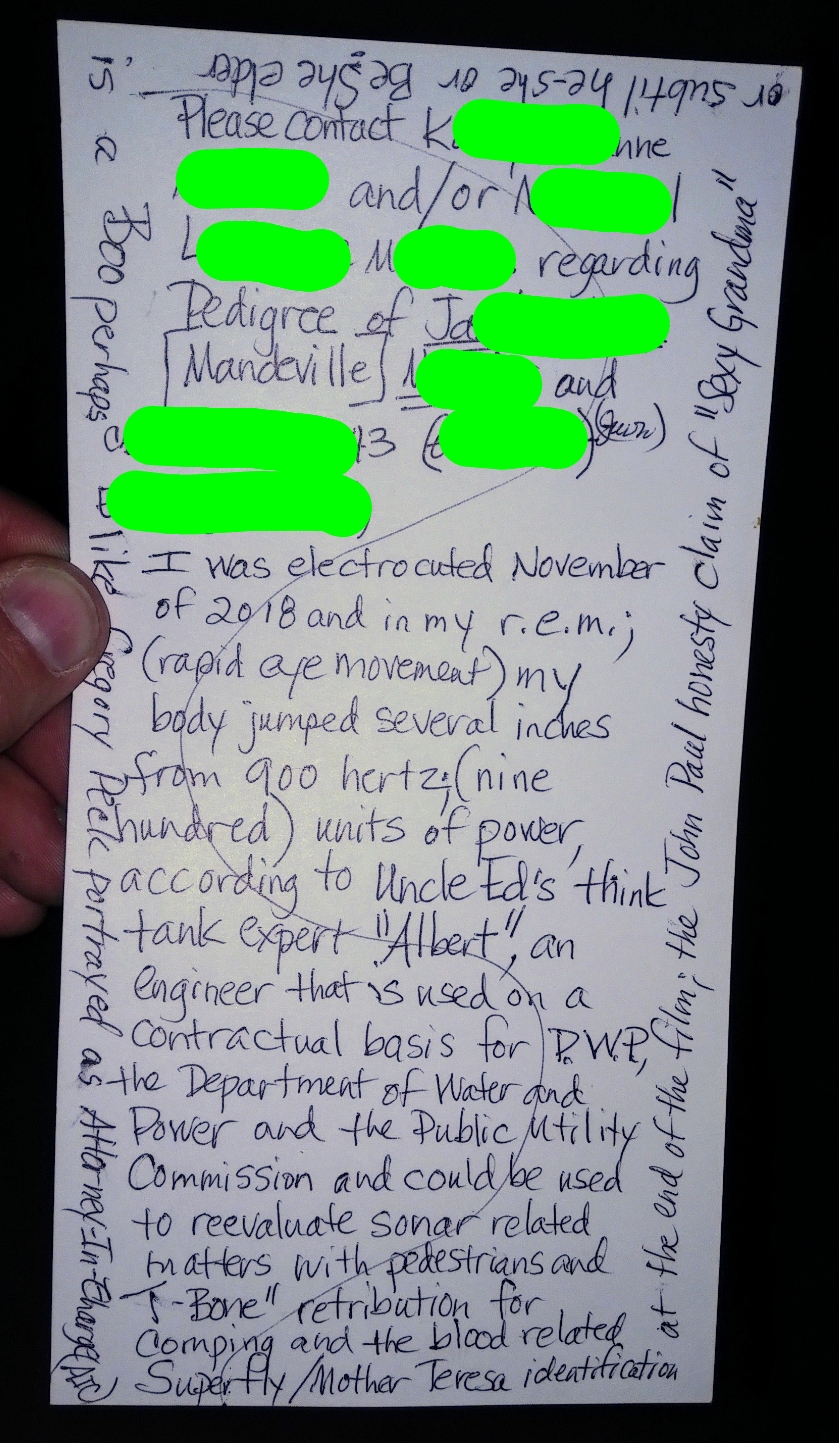 Please contact K nne
and/or
L M regarding
Pedigree of Ja
[Mandeville] and
13 (
I was electrocuted November
of 2018 and in my r.e.m.;
(rapid eye movement) my
body jumped several inches
from 900 hertz;(nine
hundred) units of power,
according to Uncle Ed's think
tank expert "Albert", an
engineer that is used on a
contractual basis for D.W.P.,
the Department of Water and
Power and the Public Utility
Commission and could be used
to reevaluate sonar related
matters with pedestrians and
T-Bone" retribution for
comping and the blood related
Superfly/Mother Teresa identification
at the end of the film; the John Paul honesty claim of "Sexy Grandma"
or subtil he-she or Be:She elder
is a Boo perhaps like Gregory Peck portrayed as Attorney-In-Charge